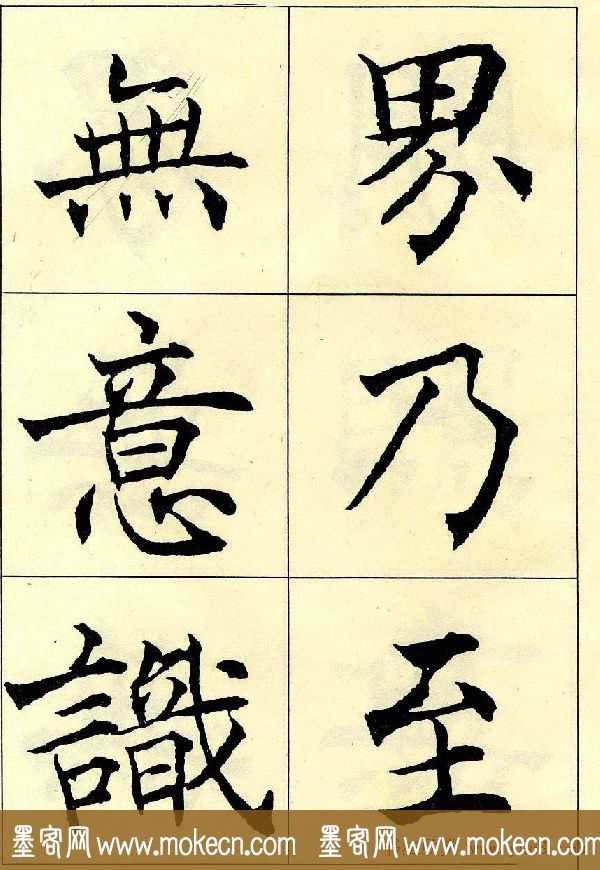 界乃至
無意識
墨客网 www.mokecn.com 墨客网 www.mokecn.com